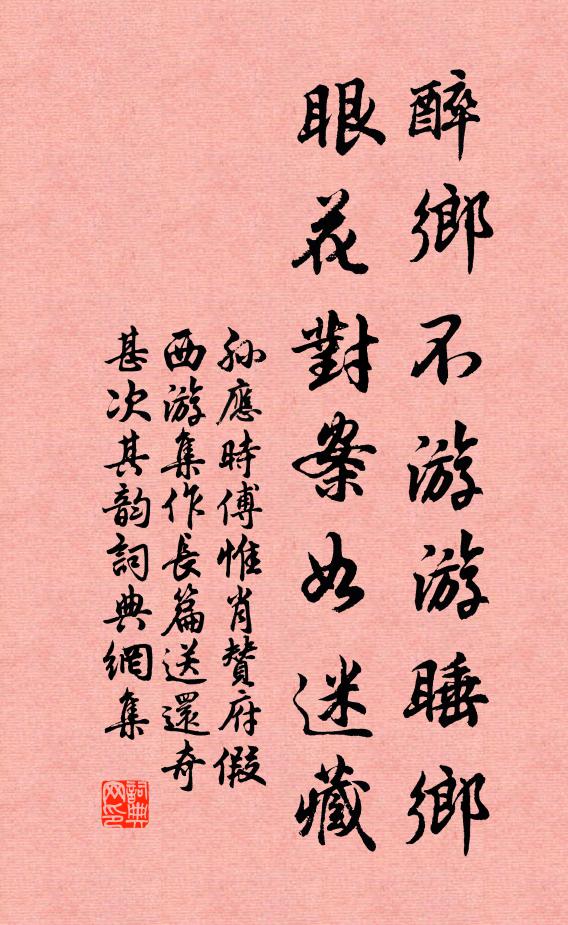 醉鄉不游游睡鄉
眼花對案如迷藏
孙應時傅惟肖贊府假
西游集作長篇送還奇
甚次其韵詞典網集
詞典网印